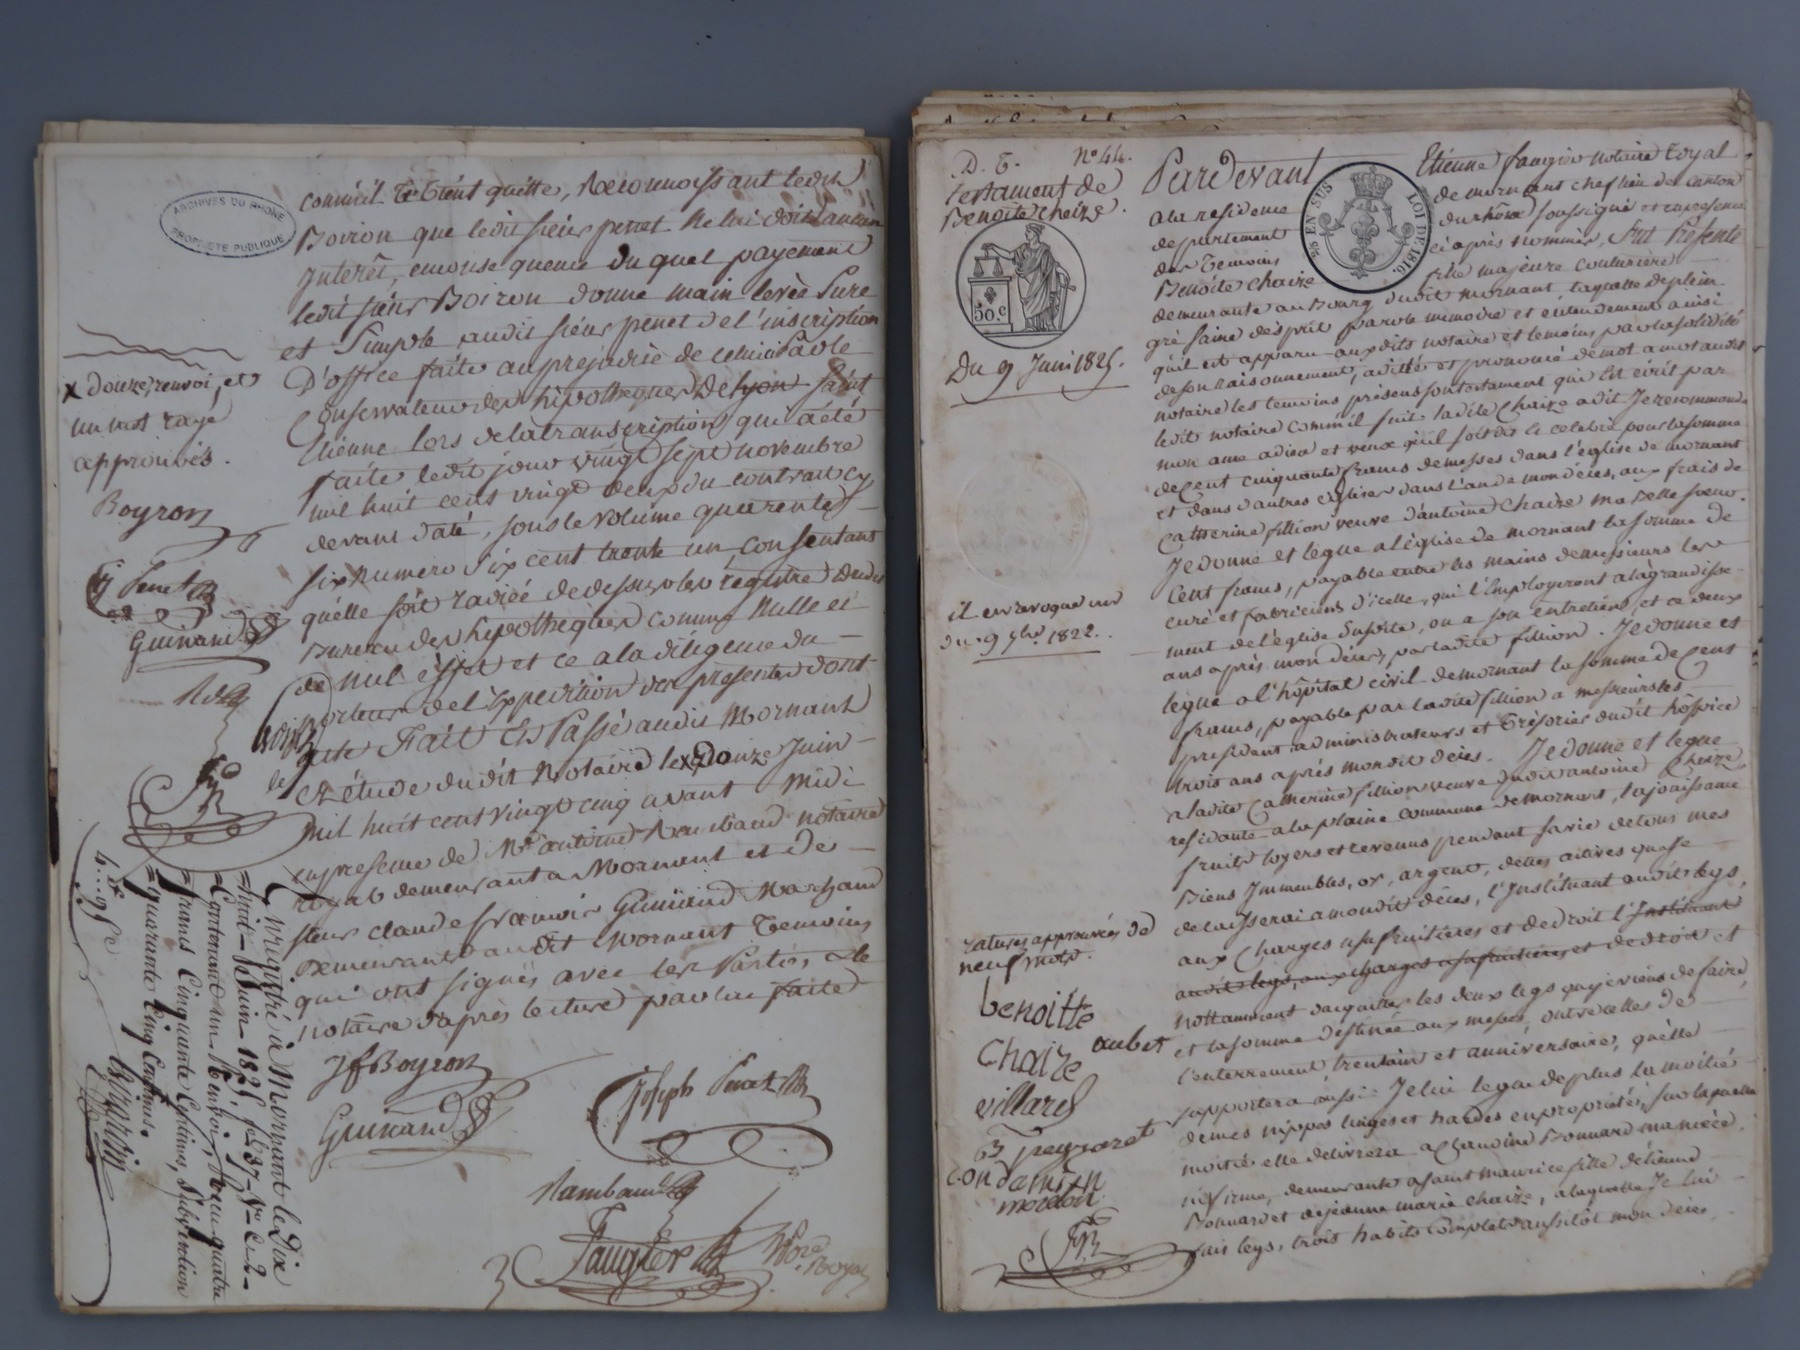 ARCHIVES DU RHÔNE
PROPRIÉTÉ PUBLIQUE
comme il tient quitte, Reconnoissant ledit
Boiron que ledit sieur penet ne lui doit aucun
Interêt, en conséquence du quel payement
ledit sieur Boiron donne main levée pure
et Simple audit sieur penet de l'inscription
D'office faite au prejudice de celui-ci par le
Conservateur des hipotheques de lyon Saint
Etienne lors de la transcription qui a été
faite ledit jour vingt sept novembre
mil huit cent vingt deux du contrat cy
devant daté, sous le volume quarente
six numero Six cent trente un, consentant
qu'elle soit radiée de dessus les registres dudit
Bureau des hipotheques comme Nulle et
de nul effet et ce a la diligence du
porteur de l'Expedition des presentes dont
acte Fait Et Passé audit Mornant
Et étude dudit Notaire le x Douze Juin
mil huit cent vingt cinq avant midi
en presence de Mr antoine Rambaud notaire
royal demeurant a Mornant et de
sieur claude francois Guinand Marchand
Demeurant audit Mornant Temoins
qui ont signés avec les Parties & le
notaire d'après lecture par lui faite
x douze, renvoi, et
un mot rayé
approuvés.
Boyron
Penet
Guinand
JfBoyron
Joseph Penet
Guinand
Rambaud
Faugier
Nore Royal
Enregistré à Mornant le Dix
huit Juin 1825 fo 37 Vo C. 2
Contenant un Renvoi, Reçu quatre
francs Cinquante Centimes, Subvention
quarante Cinq Centimes.
4f..95c
D. T. No 44.
Testament de
Benoite Cheize.
50.c
Du 9 Juin 1825.
il en revoque un
du 9 9bre 1822.
25 EN SUS LOI DE 1816.
Pardevant Etienne faugier notaire Royal
a la residence de mornant chef lieu de Canton
departement du rhône soussigné et en presence
des Temoins ci après nommés, Fut Présente
Benoite Chaize fille majeure couturière
demeurante au Bourg dudit mornant, laquelle de plein
gré saine d'esprit parole memoire et entendement ainsi
qu'il est apparu aux dits notaire et temoins par la solidité
de son raisonnement, a dicté et prononcé de mot a mot audit
notaire les temoins présens son testament qui Est écrit par
ledit notaire comme il suit ladite Chaize a dit Je recommande
mon ame a dieu et veux qu'il soit dit et celebré pour la somme
de Cent cinquante francs de messes dans l'église de mornant
et dans d'autres églises dans l'an de mon décès, aux frais de
Catherine fillion veuve d'antoine Chaize ma Belle soeur.
Je donne et legue a l'église de mornant la somme de
Cent francs, payable entre les mains de messieurs les
curé et fabriciens d'icelle, qui l'Employeront a l'agrandisse-
ment de l'église susdite, ou a son entretien, et ce deux
ans après mon décès, par ladite fillion. Je donne et
legue a l'hôpital civil de mornant la somme de Cent
francs, payable par ladite fillion a messieurs les
president administrateurs et Trésorier dudit hospice
trois ans après mon dit décès. Je donne et legue
a ladite Catherine fillion veuve dudit antoine Cheize
residante a la plaine commune de mornant, la jouissance
fruits loyers et revenus pendant sa vie de tous mes
Biens Immeubles, or, argent, dettes actives que je
delaisserai a mondit décès, l'Instituant audit legs,
aux Charges usufruitieres et de droit l'Instituant
audit legs, aux charges usufruitieres et de droit et
nottamment d'acquitter les deux legs que je viens de faire,
et la somme destinée aux messes, outre celles de
l'enterrement trentain et anniversaire, qu'elle
supportera aussi. Je lui legue de plus la moitié
de mes nippes linges et hardes en propriétés, sur laquelle
moitié elle delivrera a Claudine Bonnard ma niéce
infirme, demeurante a saint maurice fille d'étienne
Bonnard et de jeanne marie chaize, a laquelle Je lui
fais legs, trois habits complets aussitôt mon décès
ratures approuvées de
neuf mots.
benoitte
Chaize
aubet
villard
B peyzaret
condamin